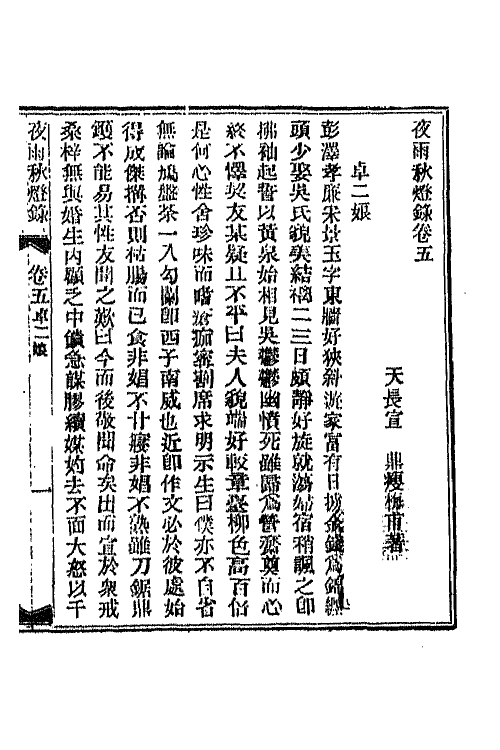 夜雨秋燈錄卷五
天長宣 鼎瘦梅甫著
卓二娘
彭澤孝廉朱景玉字東牆好狹斜游家富有日擲金錢為錦纏
頭少娶吳氏貌美結褵二三日頗靜好旋就蕩婦宿稍諷之卽
拂袖起誓以黃泉始相見吳鬱鬱幽憤死雖歸為誓齋奠而心
終不懌契友某疑且不平曰夫人貌端好較章臺柳色高百倍
是何心性舍珍味而嗜瘡痂竊割席求明示生曰僕亦不自省
無論鳩盤荼一入勾闌卽西子南威也近卽作文必於彼處始
得成傑搆否則枯腸而已食非娼不甘寢非娼不熟雖刀鋸鼎
鑊不能易其性友聞之歎曰今而後敬聞命矣出而宣於衆戒
桑梓無與婚生內顧乏中饋急謀膠續媒妁去不面大怒以千
夜雨秋燈錄 卷五卓二娘 一